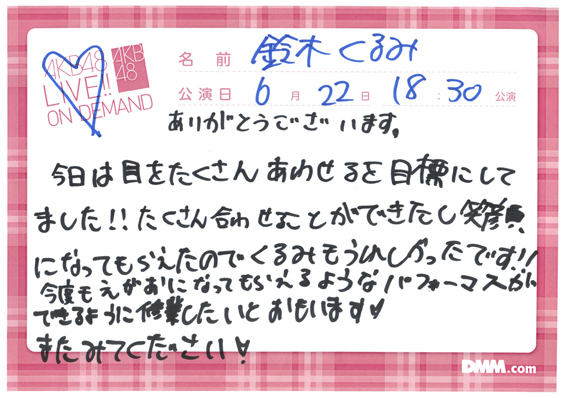 AKB48
LIVE!!
ON DEMAND
AKB
48
名前 鈴木くるみ
公演日 6月22日 18:30公演
ありがとうございます。
今日は目をたくさんあわせるを目標にして
ました!!たくさん合わせることができたし笑顔
になってもらえたのでくるみもうれしかったです!!
今度もえがおになってもらえるようなパフォーマスがに
できるように修業したいとおもいます♥
またみてください♥
DMM.com